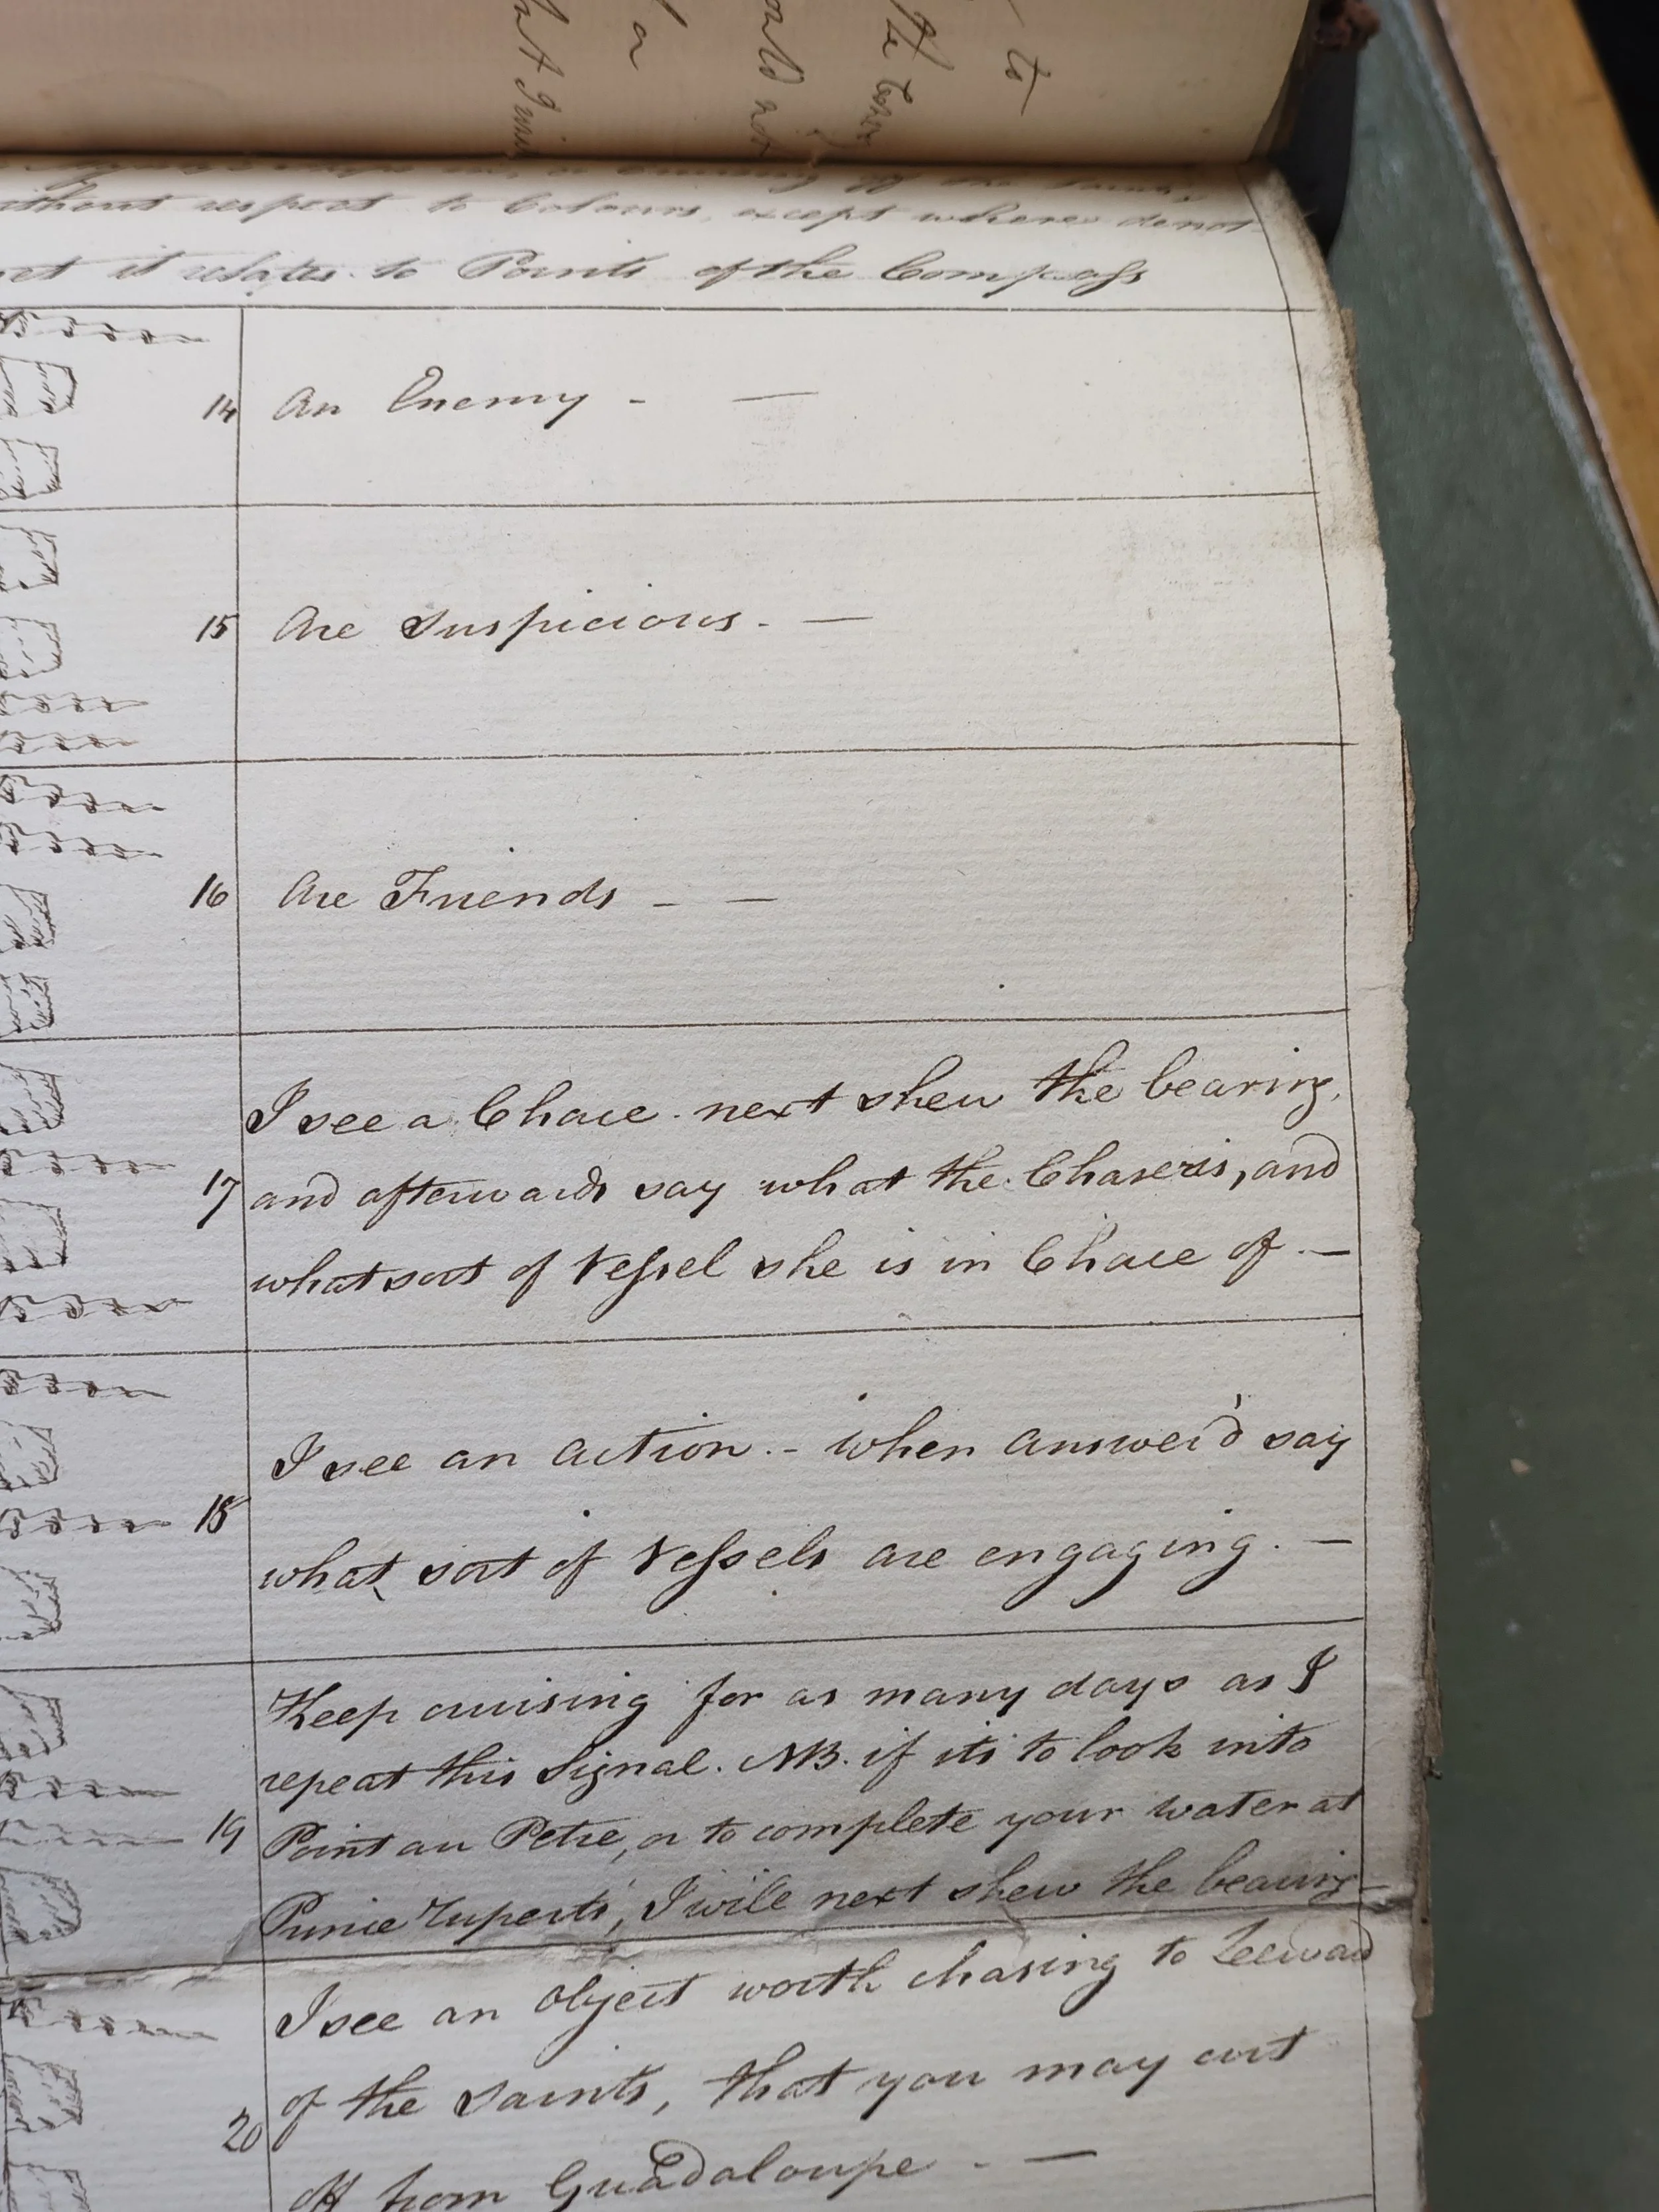 to
the
ould not
a
without respect to Colours, except where denot
it relates to Points of the Compass
14 An Enemy - —
15 Are Suspicious. —
16 Are Friends - —
I see a Chace. next shew the bearing,
17 and afterwards say what the Chaser is, and
what sort of Vessel she is in Chace of. —
I see an action. - when answer'd say
18
what sort of Vessels are engaging. —
Keep cruising for as many days as I
repeat this Signal. NB. if its to look into
19 Point au Petre, or to complete your water at
Prince Ruperts, I will next shew the bearing
I see an object worth chasing to Leeward
of the Saints, that you may cut
20
off from Guadaloupe. —